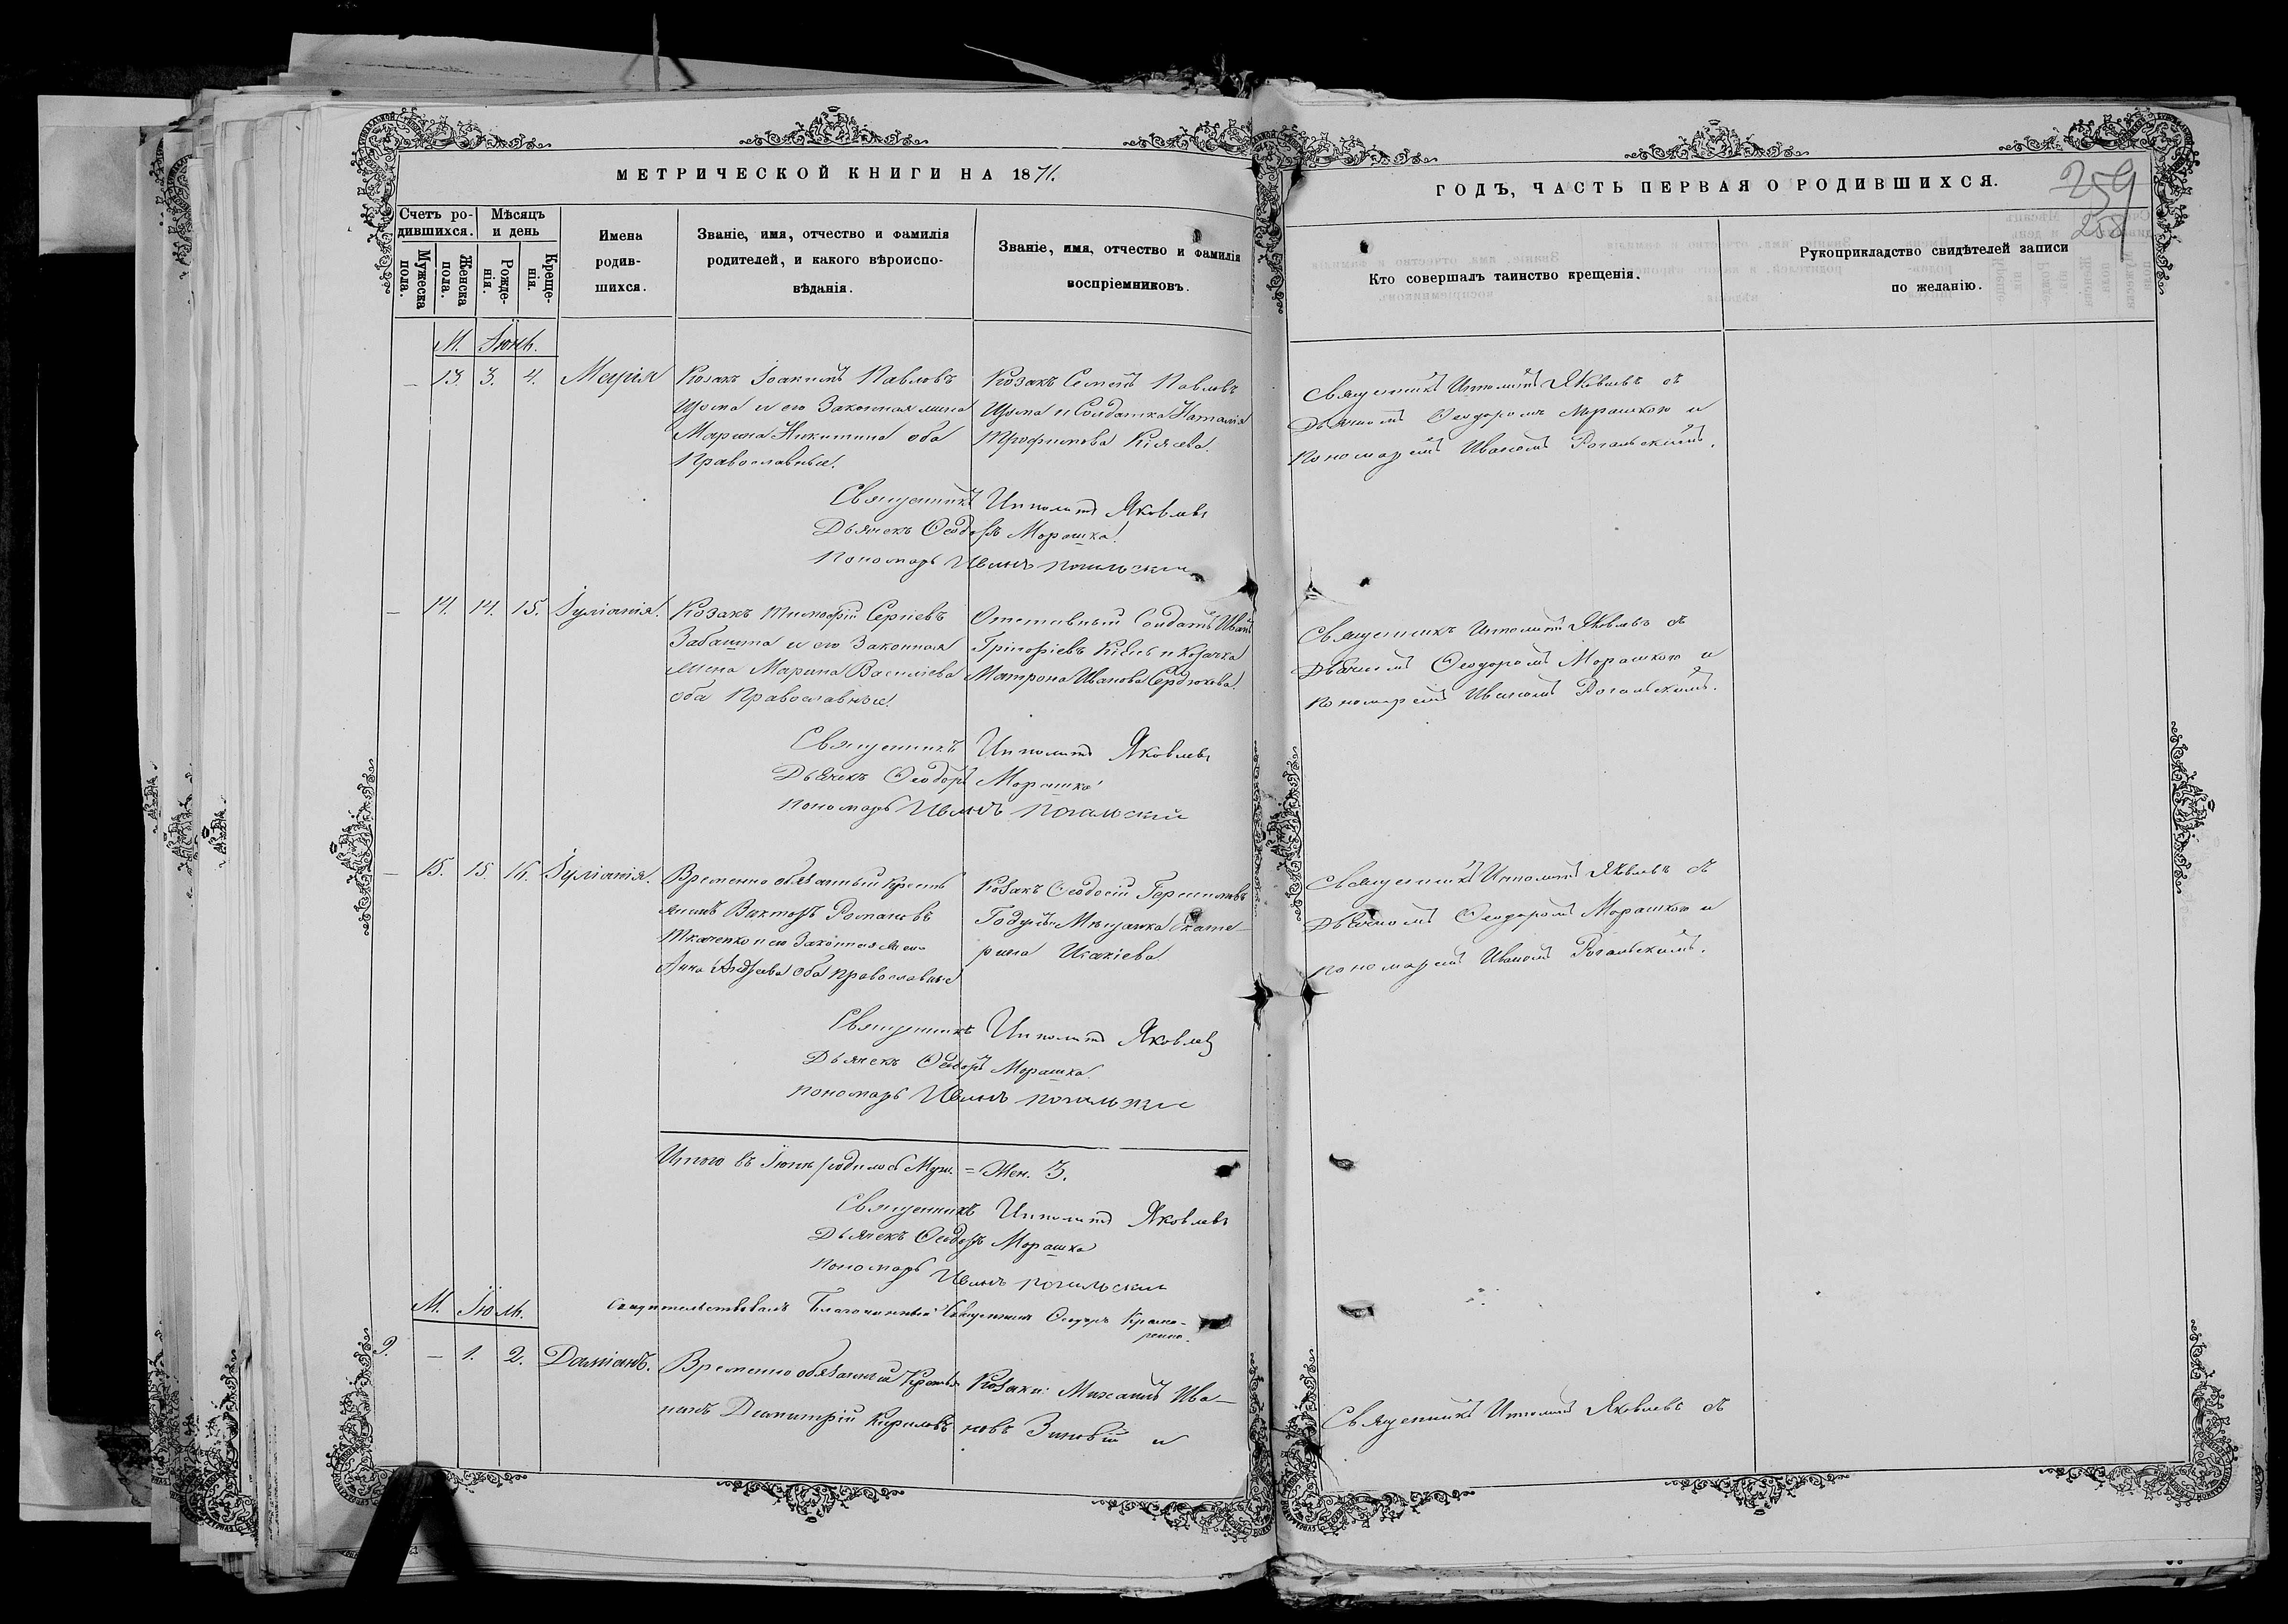 МЕТРИЧЕСКОЙ КНИГИ НА 1871.
ГОДЪ, ЧАСТЬ ПЕРВАЯ О РОДИВШИХСЯ.
259
258
Счетъ ро-
дившихся.
Мѣсяцъ
и день
Мужеска
пола.
Женска
пола.
Рожде-
нія.
Креще-
нія.
Имена
родив-
шихся.
Званіе, имя, отчество и фамилія
родителей, и какого вѣроиспо-
вѣданія.
Званіе, имя, отчество и фамилія
воспріемниковъ.
Кто совершалъ таинство крещенія.
Рукоприкладство свидѣтелей записи
по желанію.
М. Іюнь.
– 13. 3. 4. Марія
Козакъ Іоакимъ Павловъ
и его Законная жена
Марина Никитина оба
Православные.
Козакъ Семенъ Павловъ
и Солдатка Наталія
Трофимова
Священникъ Ипполитъ Яковлевъ съ
Дьячкомъ Ѳеодоромъ Морашкою и
Пономаремъ Иваномъ Рогальскимъ.
Священникъ Ипполитъ Яковлевъ
Дьячекъ Ѳеодоръ Морашка
Пономарь Иванъ Рогальскій
– 14. 14. 15. Іуліанія.
Козакъ Тимофій Сергіевъ
Забашта и его Законная
жена Марина Василіева
оба Православные.
Отставный Солдатъ Иванъ
Григоріевъ и Козачка
Матрона Иванова Сердюкова.
Священникъ Ипполитъ Яковлевъ съ
Дьячкомъ Ѳеодоромъ Морашкою и
Пономаремъ Иваномъ Рогальскимъ.
Священникъ Ипполитъ Яковлевъ
Дьячекъ Ѳеодоръ Морашка
Пономарь Иванъ Рогальскій
– 15. 15. 16. Іуліанія.
Временно обязанный Кресть
янинъ Викторъ Романовъ
Ткаченко и его Законная жена
Анна Андреева оба Православные
Козакъ Ѳеодосій
Мѣщанка Екате-
рина Исакіева
Священникъ Ипполитъ Яковлевъ съ
Дьячкомъ Ѳеодоромъ Морашкою и
Пономаремъ Иваномъ Рогальскимъ.
Священникъ Ипполитъ Яковлевъ
Дьячекъ Ѳеодоръ Морашка
Пономарь Иванъ Рогальскій
Итого въ Іюнѣ родилось Муж. = Жен. 3.
Священникъ Ипполитъ Яковлевъ
Дьячекъ Ѳеодоръ Морашка
Пономарь Иванъ Рогальскій
Свидѣтельствовалъ Благочинный Священникъ Ѳеодоръ Крамо-
ренко.
М. Іюль.
9. – 1. 2. Даміанъ.
Временно обязанный Крестья
нинъ Димитрій Кириловъ
Козаки: Михаилъ Ива-
новъ Зиновій и
Священникъ Ипполитъ Яковлевъ съ